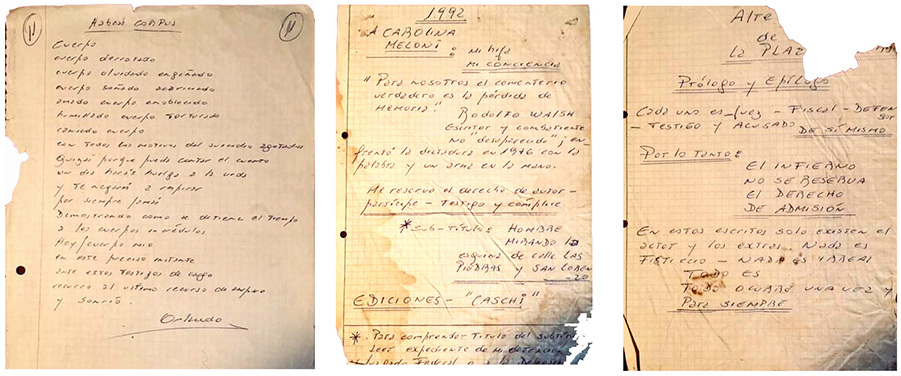 11
Habeas Corpus
11
Cuerpo
cuerpo derrotado
cuerpo olvidado engañado
cuerpo soñado acariciado
amado cuerpo enoblecido
humillado cuerpo torturado
cansado cuerpo
con todos los motivos del suicidio agotados
Quizás porque puedo contar el cuento
un día harás huelga a la vida
y te negarás a respirar
por siempre jamás
Demostrando como se detiene el tiempo
a los cuerpos incrédulos
Hoy/cuerpo mío
en este preciso instante
ante estos testigos de cargo
recurro al último recurso de amparo
y sonrío.
Orlando
1992
A CAROLINA
MELONI : Mi hija
MI CONCIENCIA
"Para nosotros el cementerio
verdadero es la pérdida de
memoria"
RODOLFO WALSH
Escritor y combatiente
no "desaparecido"; en-
frentó la dictadura en 1976 con la
palabra y un arma en la mano.
Me reservo el derecho de autor-
partícipe - testigo y cómplice
* Sub-título: HOMBRE
MIRANDO la
esquina de calle LAS
PIEDRAS y SAN LOREN
-ZO
EDICIONES - "CASCHI"
* Para comprender Título del subtítulo
Leer expediente de mi detención
Juzgado Federal
Alte
de
la PLAZ
Prólogo y Epílogo
Cada uno es Juez - Fiscal - DEFEN
SOR
- TESTIGO y ACUSADO
DE SÍ MISMO
Por lo tanto:
EL INFIERNO
NO SE RESERVA
EL DERECHO
DE ADMISIÓN
En estos escritos solo existen el
actor y los extras. Nada es
FICTICIO - NADA es IRREAL
TODO es
TODO OCURRE UNA VEZ y
PARA SIEMPRE